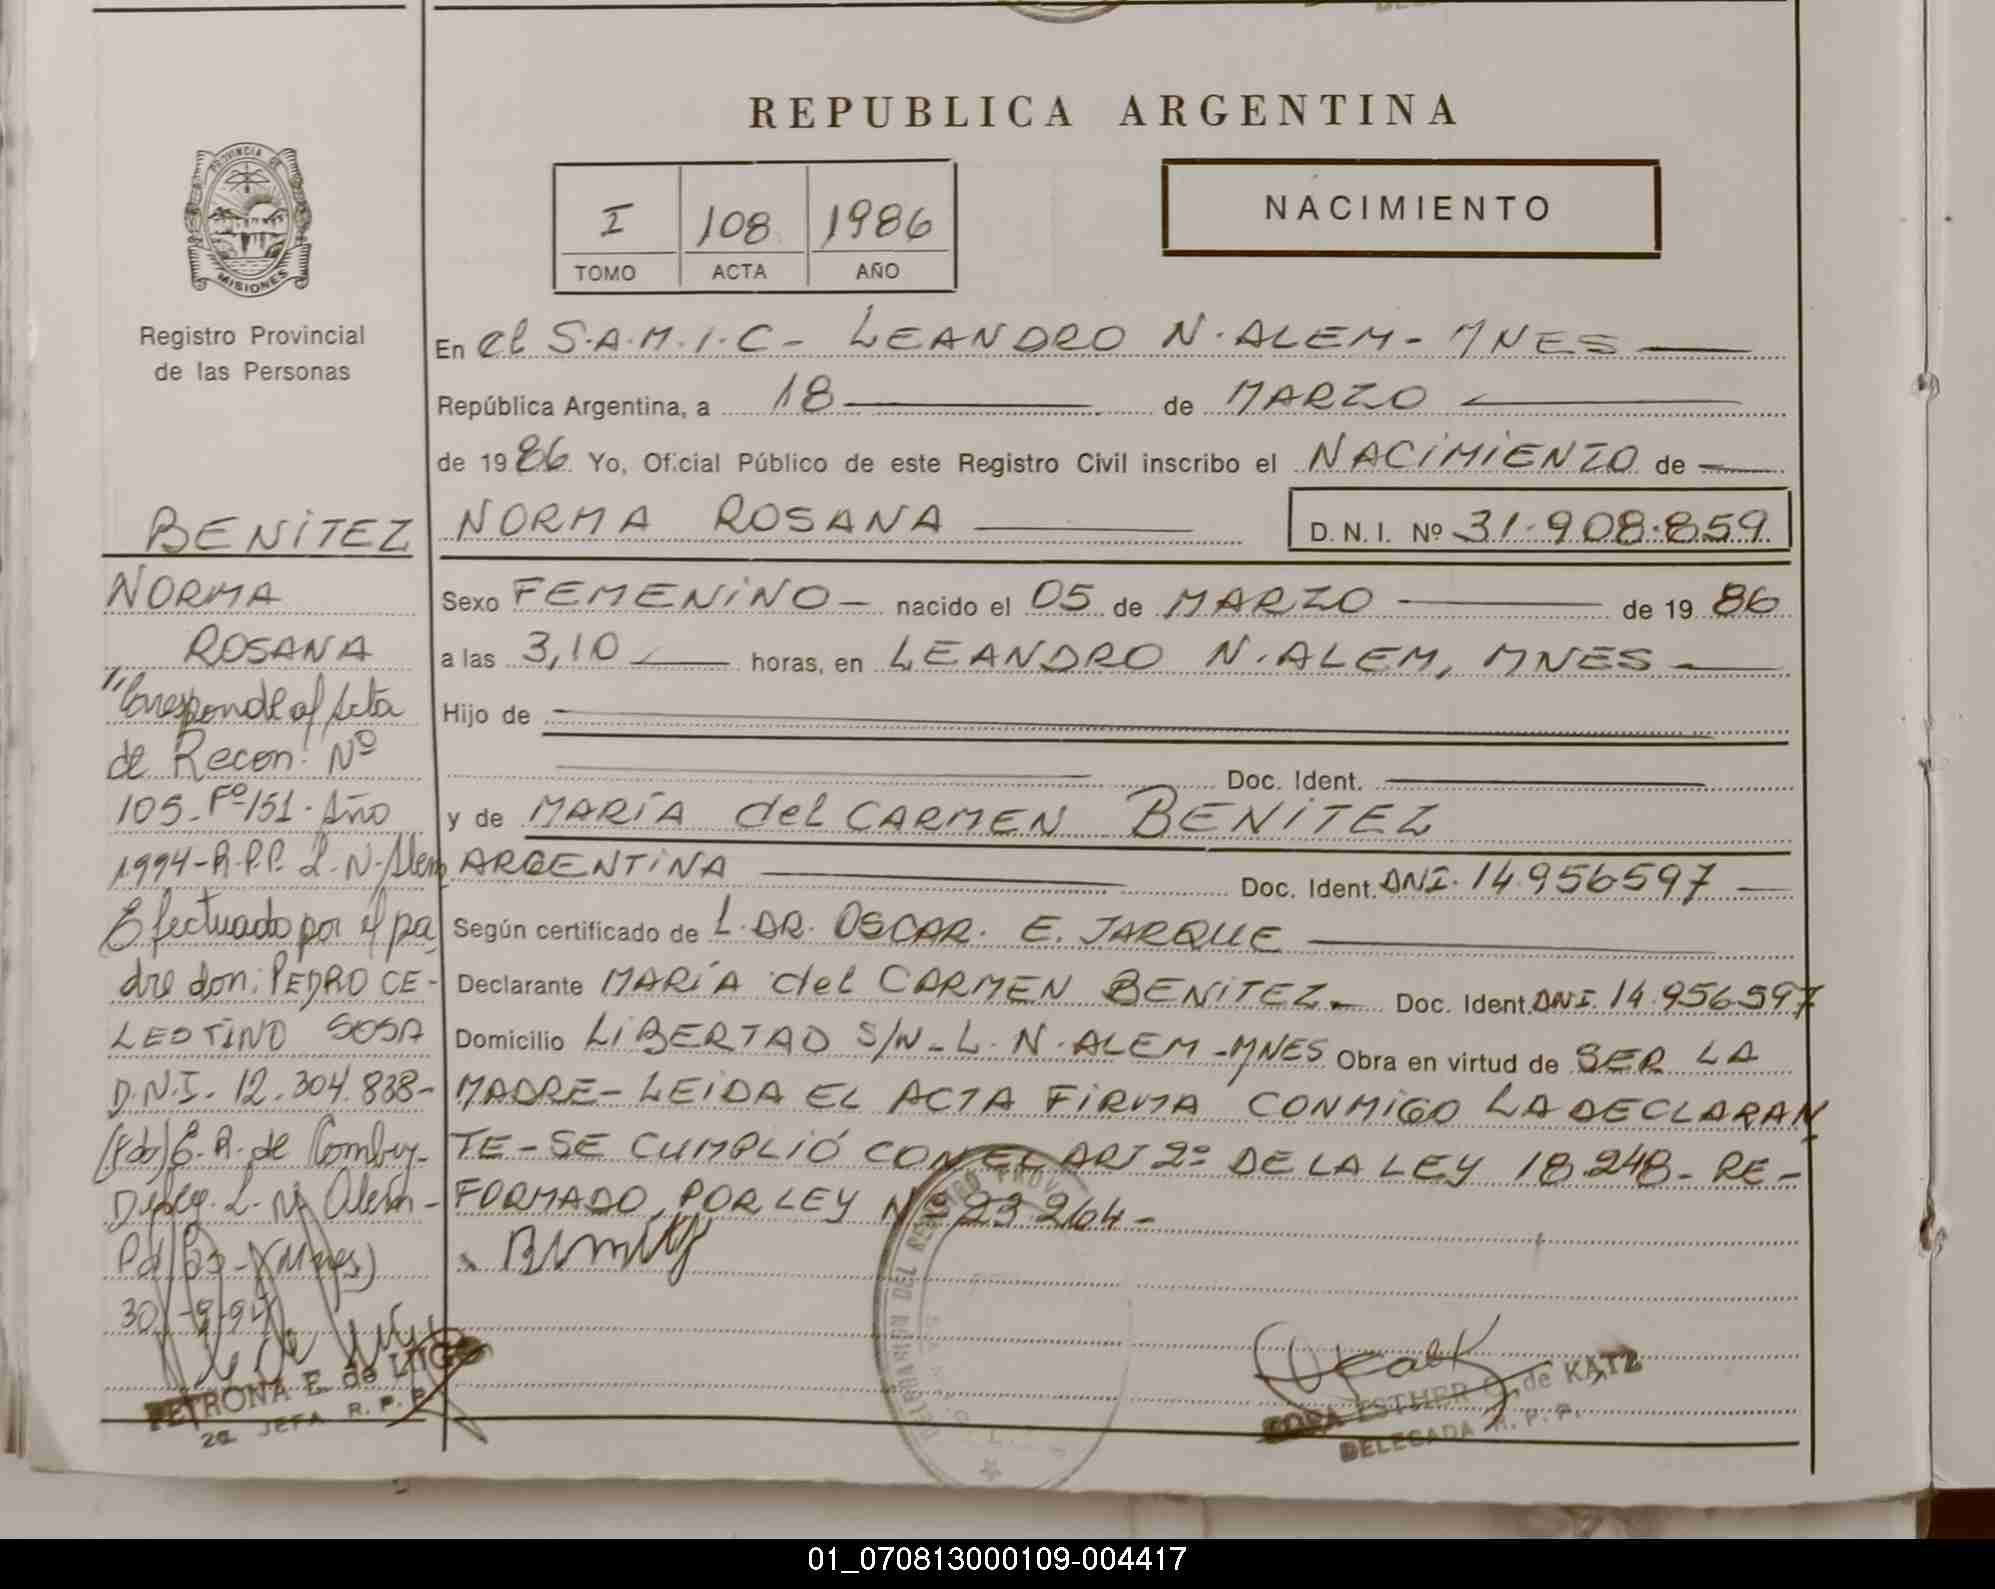 REPUBLICA ARGENTINA
PROVINCIA DE
MISIONES
Registro Provincial
de las Personas
I 108 1986
TOMO ACTA AÑO
NACIMIENTO
En el S.A.M.I.C - LEANDRO N. ALEM - MNES
República Argentina, a 18 de MARZO
de 1986 Yo, Oficial Público de este Registro Civil inscribo el NACIMIENTO de
NORMA ROSANA D. N. I. Nº 31.908.859
Sexo FEMENINO - nacido el 05 de MARZO de 19 86
a las 3,10 horas, en LEANDRO N. ALEM, MNES
Hijo de
Doc. Ident.
y de MARÍA del CARMEN BENITEZ
ARGENTINA Doc. Ident. DNI. 14.956597
Según certificado de L. DR. OSCAR. E. JARQUE
Declarante MARÍA del CARMEN BENITEZ - Doc. Ident. DNI. 14.956.597
Domicilio LIBERTAD S/N - L. N. ALEM - MNES Obra en virtud de SER LA
MADRE - LEIDA EL ACTA FIRMA CONMIGO LA DECLARAN
TE - SE CUMPLIÓ CON EL ART 2º DE LA LEY 18.248 - RE -
FORMADO POR LEY Nº 23.264 -
BENITEZ
NORMA
ROSANA
"Corresponde al Acta
de Recon. Nº
105 - Fº 151 - Año
1994 - R.P.P. L. N. Alem
Efectuado por el pa
dre don: PEDRO CE -
LESTINO SOSA
D.N.I. 12.304.838 -
(fdo) E. R. de
L. N. Alem -
(Mnes)
PETRONA E. de
2a JEFA R. P. P.
ROSA ESTHER de KATZ
DELEGADA R. P. P.
01_070813000109-004417